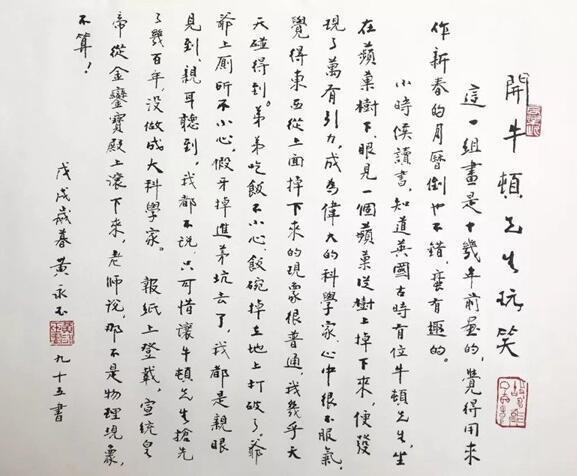 開牛頓先生玩笑
這一組畫是十幾年前畫的，覺得用來
作新春的月曆倒也不錯，蠻有趣的。
小時候讀書，知道英國古時有位牛頓先生，坐
在蘋菓樹下眼見一個蘋菓從樹上掉下來，便發
現了萬有引力，成為偉大的科學家，心中很不服氣，
覺得東西從上面掉下來的現象很普通，我幾乎天
天碰得到。弟弟吃飯不小心，飯碗掉在地上打破了，爺
爺上廁所不小心，假牙掉進茅坑去了，我都是親眼
見到、親耳聽到，我都不說，只可惜讓牛頓先生搶先
了幾百年，沒做成大科學家。 報紙上登載，宣統皇
帝從金鑾寶殿上滾下來，老師說，那不是物理現象，
不算！
戊戌歲暮 黃永玉 九十五書